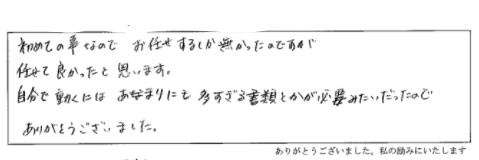 初めての事なので お任せするしか無かったのですが
任せて良かったと思います。
自分で動くには あまりにも多すぎる書類とかが必要みたいだったので
ありがとうございました。
ありがとうございました。私の励みにいたします